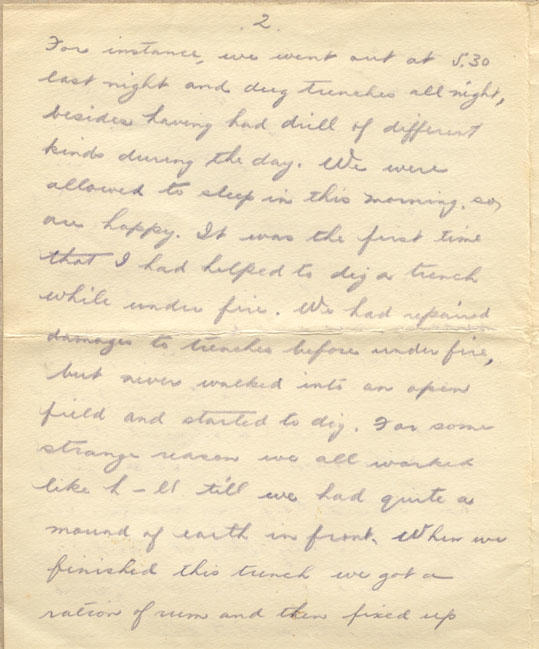 . 2 .
For instance, we went out at 5.30
last night and dug trenches all night,
besides having had drill of different
kinds during the day. We were
allowed to sleep in this morning, so
are happy. It was the first time
that I had helped to dig a trench
while under fire. We had repaired
damages to trenches before under fire,
but never walked into an open
field and started to dig. For some
strange reason we all worked
like h-ll till we had quite a
mound of earth in front. When we
finished this trench we got a
ration of rum and then fixed up